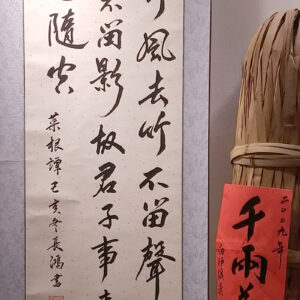 風去竹不留聲
不留影故君子事
隨空
菜根譚己亥冬長鴻書
二〇〇九年
千兩